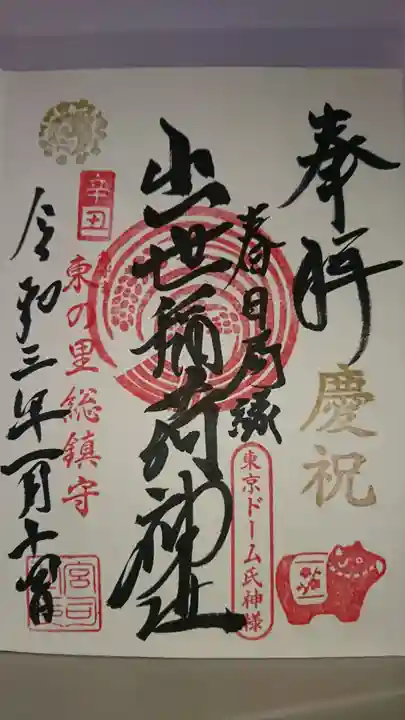 奉拝
慶祝
春日局縁
東京ドーム氏神様
出世稲荷神社
辛丑
東の里総鎮守
令和三年一月十
宮司